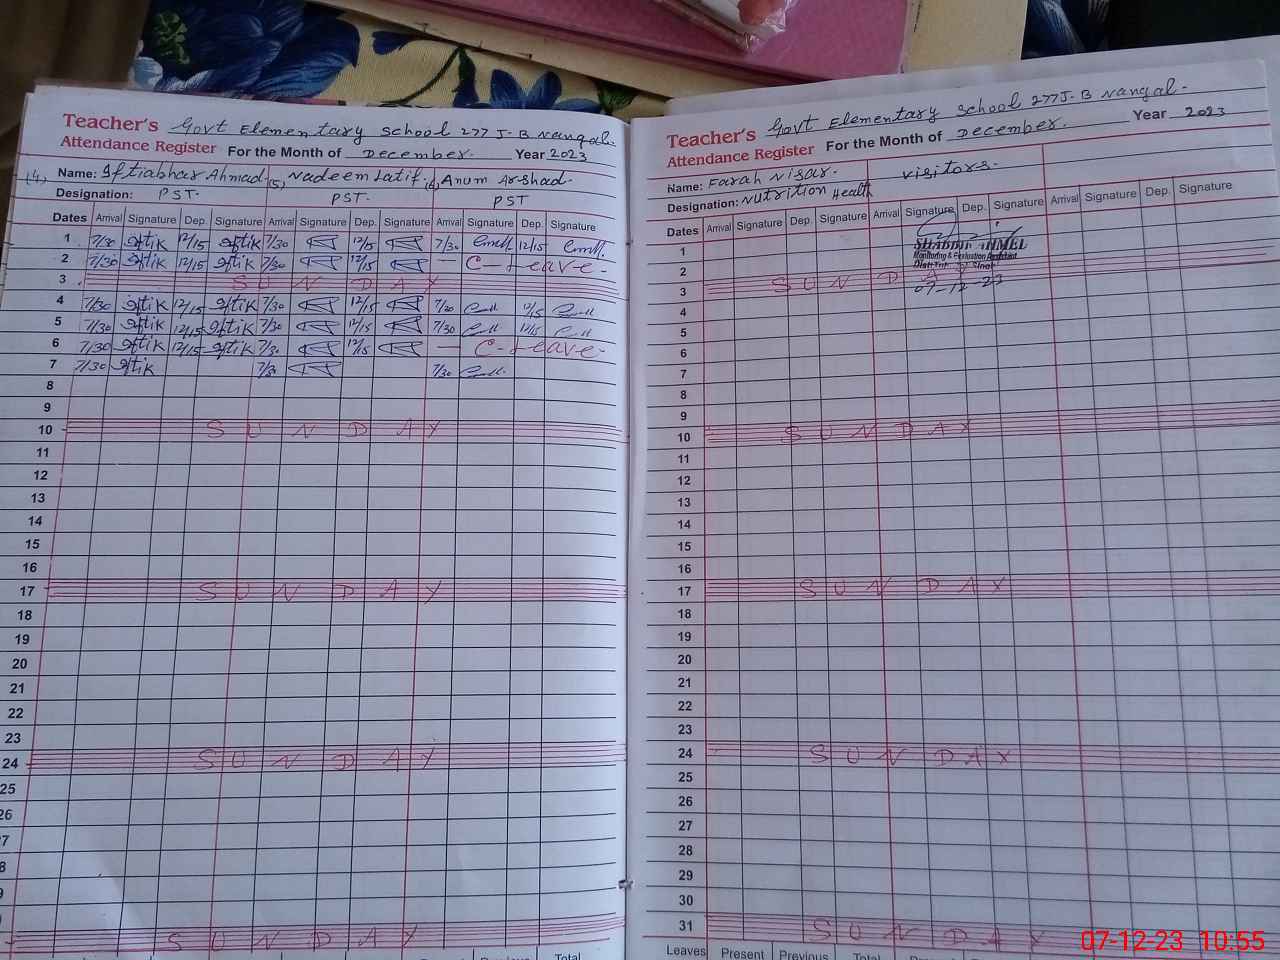 Teacher's Govt Elementary School 277 J-B Nangal.
Attendance Register For the Month of December. Year 2023
(4) Name: Iftiakhar Ahmad (5) Nadeem Latif. (6) Anum Arshad.
Designation: PST. PST. PST
Dates Arrival Signature Dep. Signature Arrival Signature Dep. Signature Arrival Signature Dep. Signature
1 7/30 Iftik 12/15 Iftik 7/30 12/15 7/30 12/15
2 7/30 Iftik 12/15 Iftik 7/30 12/15 — C-Leave-
3 SUNDAY
4 7/30 Iftik 12/15 Iftik 7/30 12/15 7/30 12/15
5 7/30 Iftik 12/15 Iftik 7/30 12/15 7/30 12/15
6 7/30 Iftik 12/15 Iftik 7/30 12/15 — C-Leave-
7 7/30 Iftik 7/30 7/30
8
9
10 SUNDAY
11
12
13
14
15
16
17 SUNDAY
18
19
20
21
22
23
24 SUNDAY
25
26
27
28
SUNDAY
Total
Teacher's Govt Elementary School 277 J-B Nangal.
Attendance Register For the Month of December. Year 2023
Name: Farah Nisar. Visitors.
Designation: Nutrition Health
Dates Arrival Signature Dep. Signature Arrival Signature Dep. Signature Arrival Signature Dep. Signature
1 SHABBIR AHMED
2 Monitoring & Evaluation Assistant
3 SUNDAY
07-12-23
4
5
6
7
8
9
10 SUNDAY
11
12
13
14
15
16
17 SUNDAY
18
19
20
21
22
23
24 SUNDAY
25
26
27
28
29
30
31 SUNDAY
Leaves Present Previous Total
07-12-23 10:55